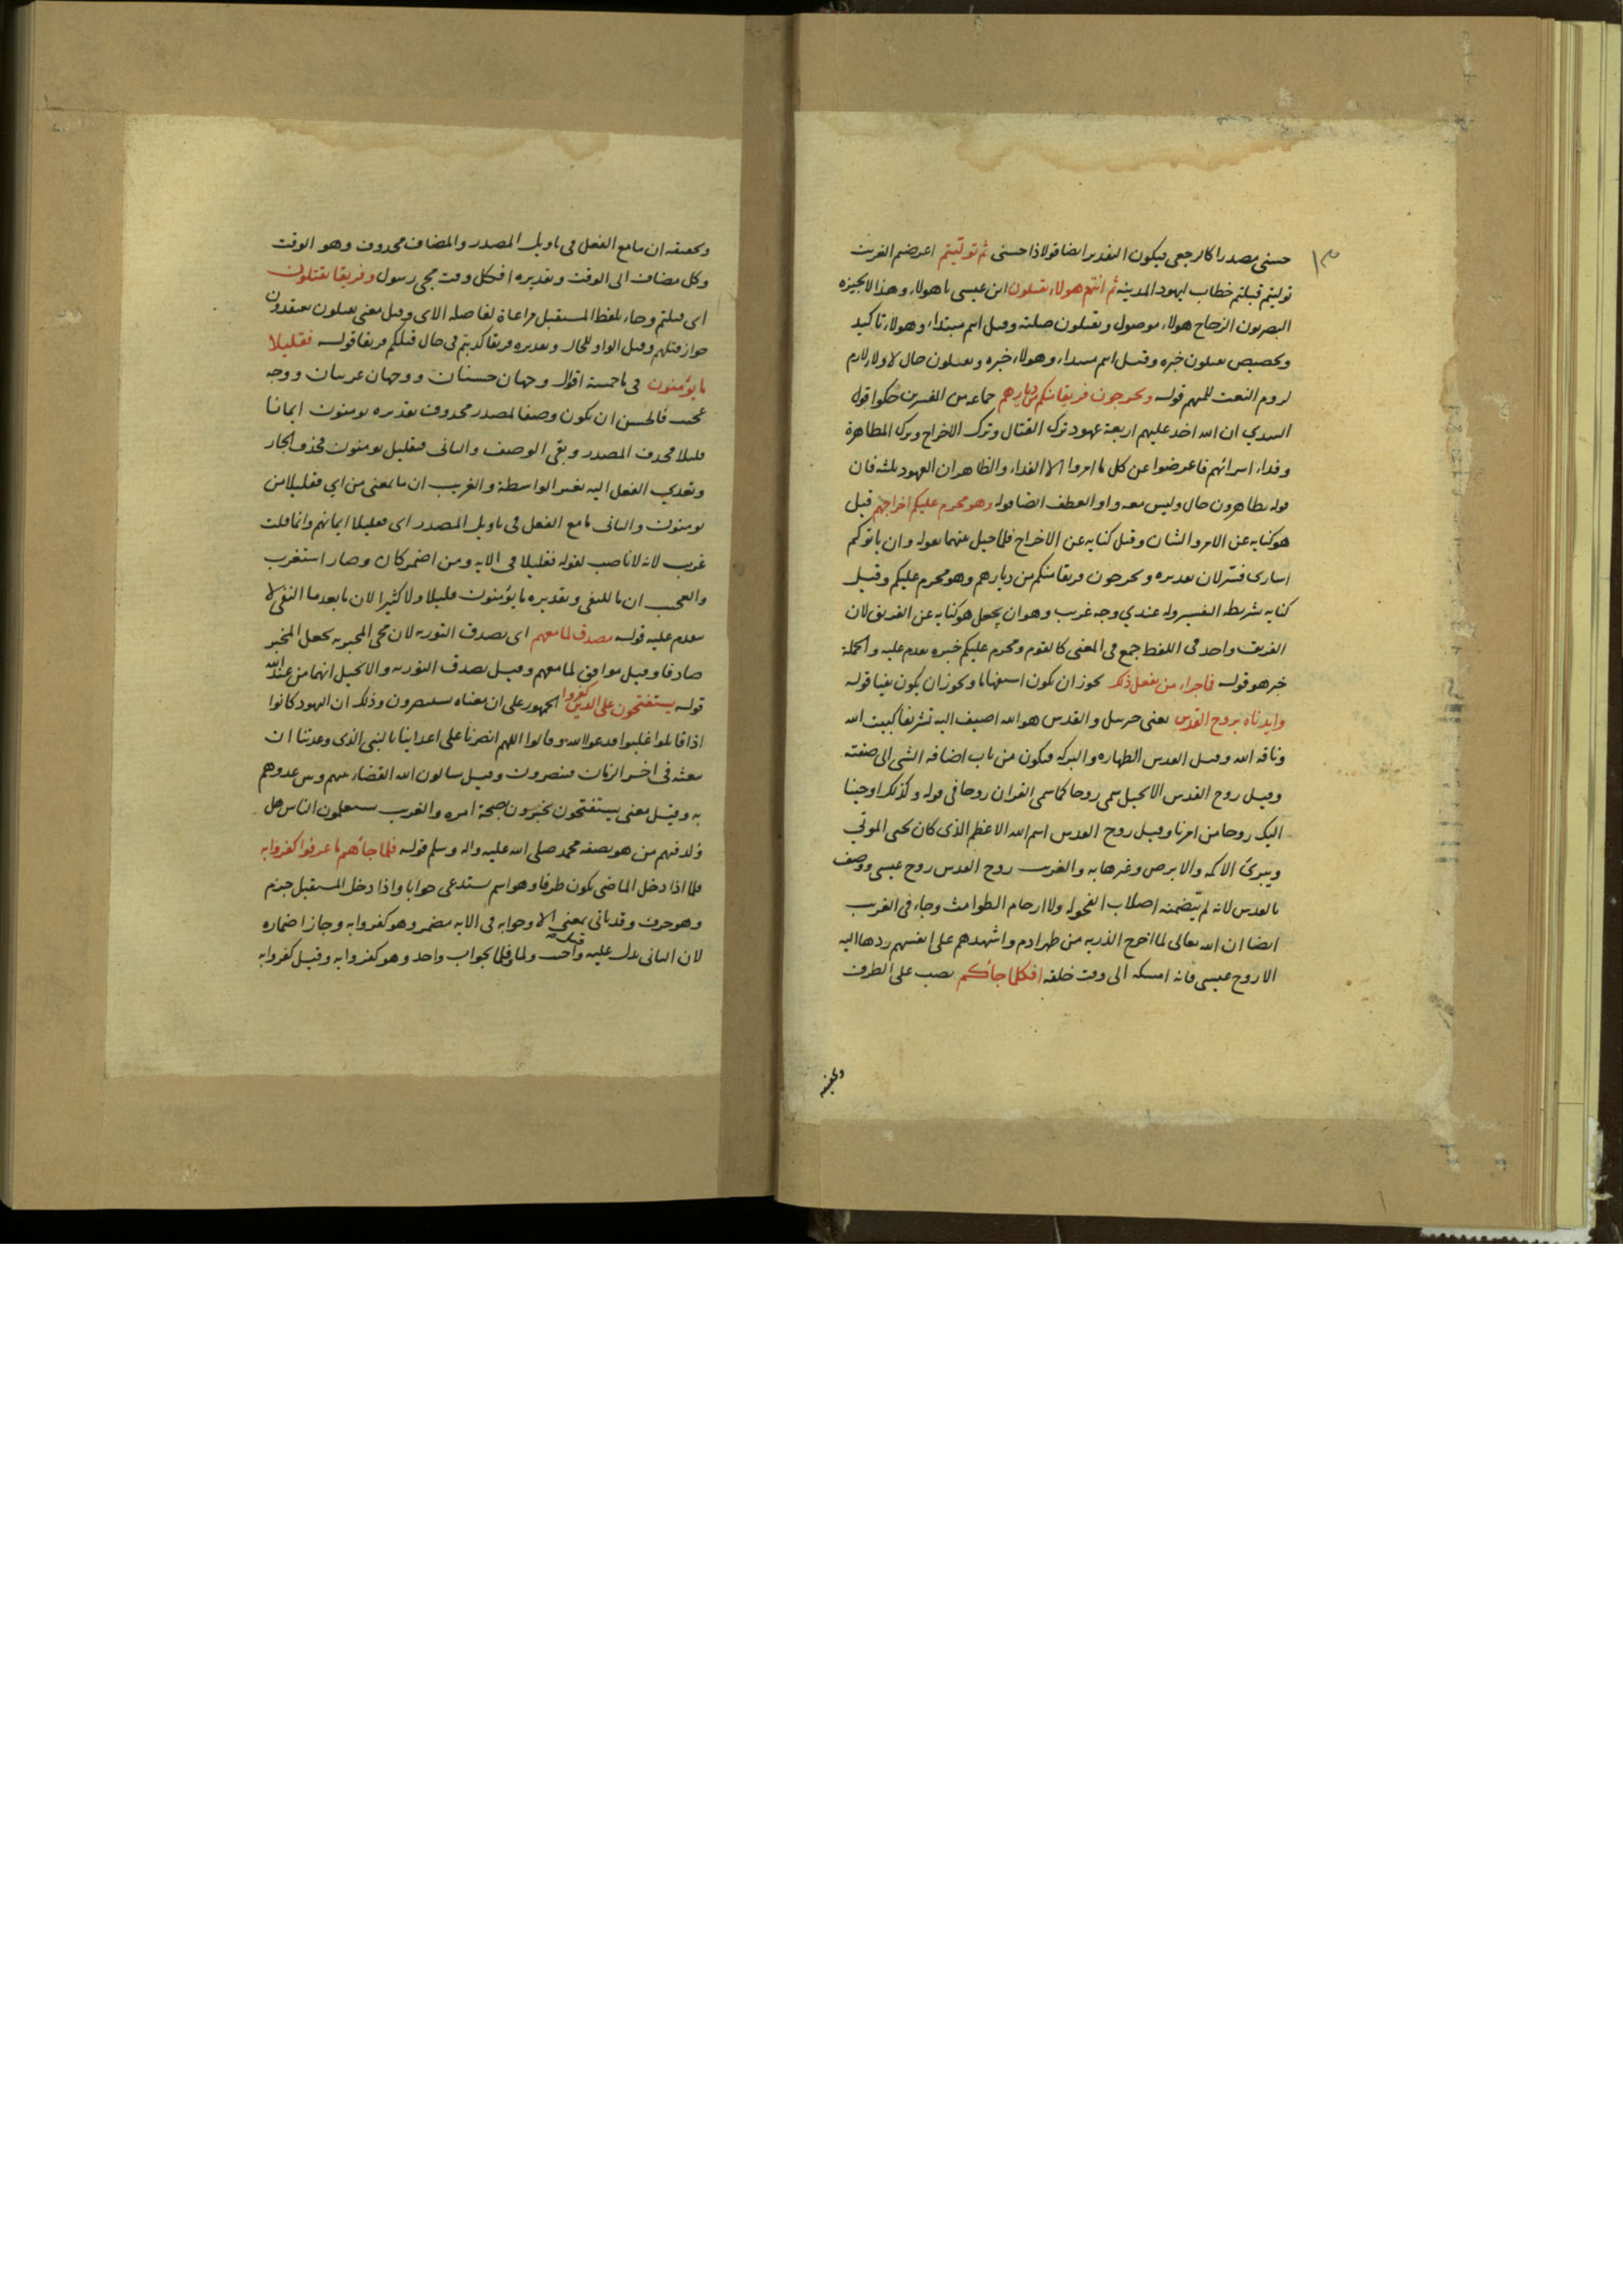 ١٣
حسنى مصدرا كالرجعى فيكون التقدير ايضا قولا ذا حسنى ثم توليتم اعرضتم الغريب
توليتم قبلتم خطاب ليهود المدينه ثم انتم هولاء تقتلون ابن عيسى يا هولاء وهذا لا يجيزه
البصريون الزجاج هولاء موصول وتقتلون صلته وقيل اسم مبتداء وهولاء تاكيد
وتخصيص تقتلون خبره وقيل اسم مبتداء وهولاء خبره وتقتلون حال لا ولازم
لزوم النعت للمبهم قوله وتخرجون فريقا منكم من ديارهم جماعه من المفسرين حكوا قول
السدي ان الله اخذ عليهم اربعة عهود ترك القتال وترك الاخراج وترك المظاهرة
وفداء اسرائهم فاعرضوا عن كل ما امروا الا الفداء والظاهر ان العهود ثلثه فان
قوله تظاهرون حال وليس معه واو العطف ايضا قوله وهو محرم عليكم اخراجهم قيل
هو كنايه عن الامر والشان وقيل كنايه عن الاخراج فلما حيل بينهما بقوله وان ياتوكم
اسارى فسر لان تقديره وتخرجون فريقا منكم من ديارهم وهو محرم عليكم وقيل
كنايه بشريطه التفسير وله عندي وجه غريب وهو ان يجعل هو كنايه عن الفريق لان
الفريق واحد في اللفظ جمع في المعنى كالقوم ومحرم عليكم خبره تقدم عليه والجملة
خبر هو قوله فما جزاء من يفعل ذلك يجوز ان يكون استفهاما ويجوز ان يكون نفيا قوله
وايدناه بروح القدس يعنى جبرئيل والقدس هو الله اضيف اليه تشريفا كبيت الله
وناقه الله وقيل القدس الطهاره والبركه فيكون من باب اضافه الشي الى صفته
وقيل روح القدس الانجيل سمى روحا كما سمى القران روحا في قوله وكذلك اوحينا
اليك روحا من امرنا وقيل روح القدس اسم الله الاعظم الذى كان يحيى الموتى
ويبرئ الاكمه والابرص وغيرها به والغريب روح القدس روح عيسى ووصف
بالقدس لانه لم يتضمنه اصلاب الفحوله ولا ارحام الطوامث وجاء في الغريب
ايضا ان الله تعالى لما اخرج الذريه من ظهر ادم واشهدهم على انفسهم ردها اليه
الا روح عيسى فانه امسكه الى وقت خلقه افكلما جائكم نصب على الظرف
وتحقيقه
وتحقيقه ان ما مع الفعل في تاويل المصدر والمضاف محذوف وهو الوقت
وكل مضاف الى الوقت وتقديره افكل وقت مجى رسول وفريقا تقتلون
اى قتلتم وجاء بلفظ المستقبل مراعاة لفاصله الاى وقيل معنى تقتلون تعتقدون
جواز قتلهم وقيل الواو للحال وتقديره فريقا كذبتم في حال قتلكم فريقا قوله فقليلا
ما يؤمنون في ما خمسة اقوال وجهان حسنان ووجهان غريبان ووجه
عجيب فالحسن ان يكون وصفا لمصدر محذوف تقديره يومنون ايمانا
قليلا فحذف المصدر وبقى الوصف والثانى فبقليل يومنون فحذف الجار
وتعدي الفعل اليه بغير الواسطة والغريب ان ما بمعنى من اي فقليلا من
يومنون والثانى ما مع الفعل في تاويل المصدر اى فقليلا ايمانهم وانما قلت
غريب لانه لا ناصب لقوله فقليلا في الايه ومن اضمر كان وصار استغرب
والعجيب ان ما للنفى وتقديره ما يؤمنون قليلا ولا كثيرا لان ما بعد ما النفى لا
يتقدم عليه قوله مصدق لما معهم اى يصدق التوريه لان مجى المخبر به يجعل المخبر
صادقا وقيل موافق لما معهم وقيل يصدق التوريه والانجيل انهما من عند الله
قوله يستفتحون على الذين كفروا الجمهور على ان معناه يستنصرون وذلك ان اليهود كانوا
اذا قاتلوا غلبوا فدعوا الله وقالوا اللهم انصرنا على اعدائنا بالنبى الذى وعدتنا ان
تبعثه في اخر الزمان فينصرون وقيل يسالون الله القضاء بينهم وبين عدوهم
به وقيل معنى يستفتحون يخبرون بصحة امره والغريب يستعلمون الناس هل
ولد فيهم من هو بصفه محمد صلى الله عليه واله وسلم قوله فلما جائهم ما عرفوا كفروا به
فلما اذا دخل الماضى يكون ظرفا وهو اسم يستدعى جوابا واذا دخل المستقبل جزم
وهو حرف وقد ياتى بمعنى الا وجوابه في الايه مضمر وهو كفروا به وجاز اضماره
لان الثانى يدل عليه وقيل واجيب ولما وفلما بجواب واحد وهو كفروا به وقيل كفروا به